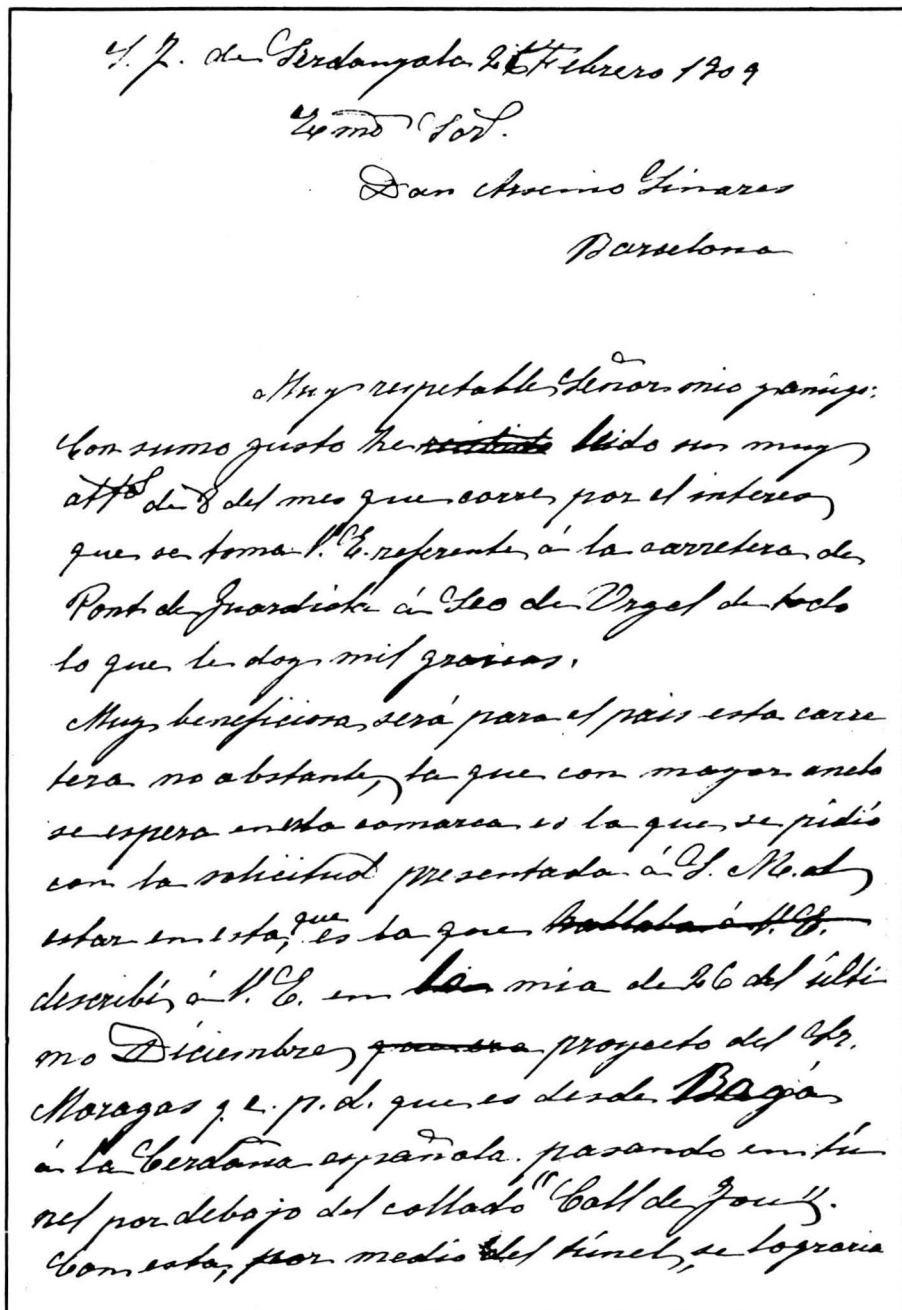 S. J. de Serdanyola 2 Febrero 1909
Exmo Sor.
Don Arsenio Linares
Barcelona
Muy respetable Señor mio y amigo:
Con sumo gusto he recibido leido sus muy
attas de 8 del mes que corre, por el interes
que se toma V. E. referente á la carretera de
Pont de Guardiola á Seo de Urgel de todo
lo que le doy mil gracias.
Muy beneficiosa será para el pais esta carre
tera no obstante, la que con mayor anelo
se espera en esta comarca es la que se pidió
con la solicitud presentada á S. M. al
estar en esta, que es la que hablaba á V. E.
describí, á V. E. en la mia de 26 del últi
mo Diciembre, proyecto del Sr.
Moragas q. e. p. d. que es desde Bagá
á la Cerdaña española. pasando en tú
nel por debajo del collado "Coll de Jou".
Con esta, por medio del túnel, se lograria